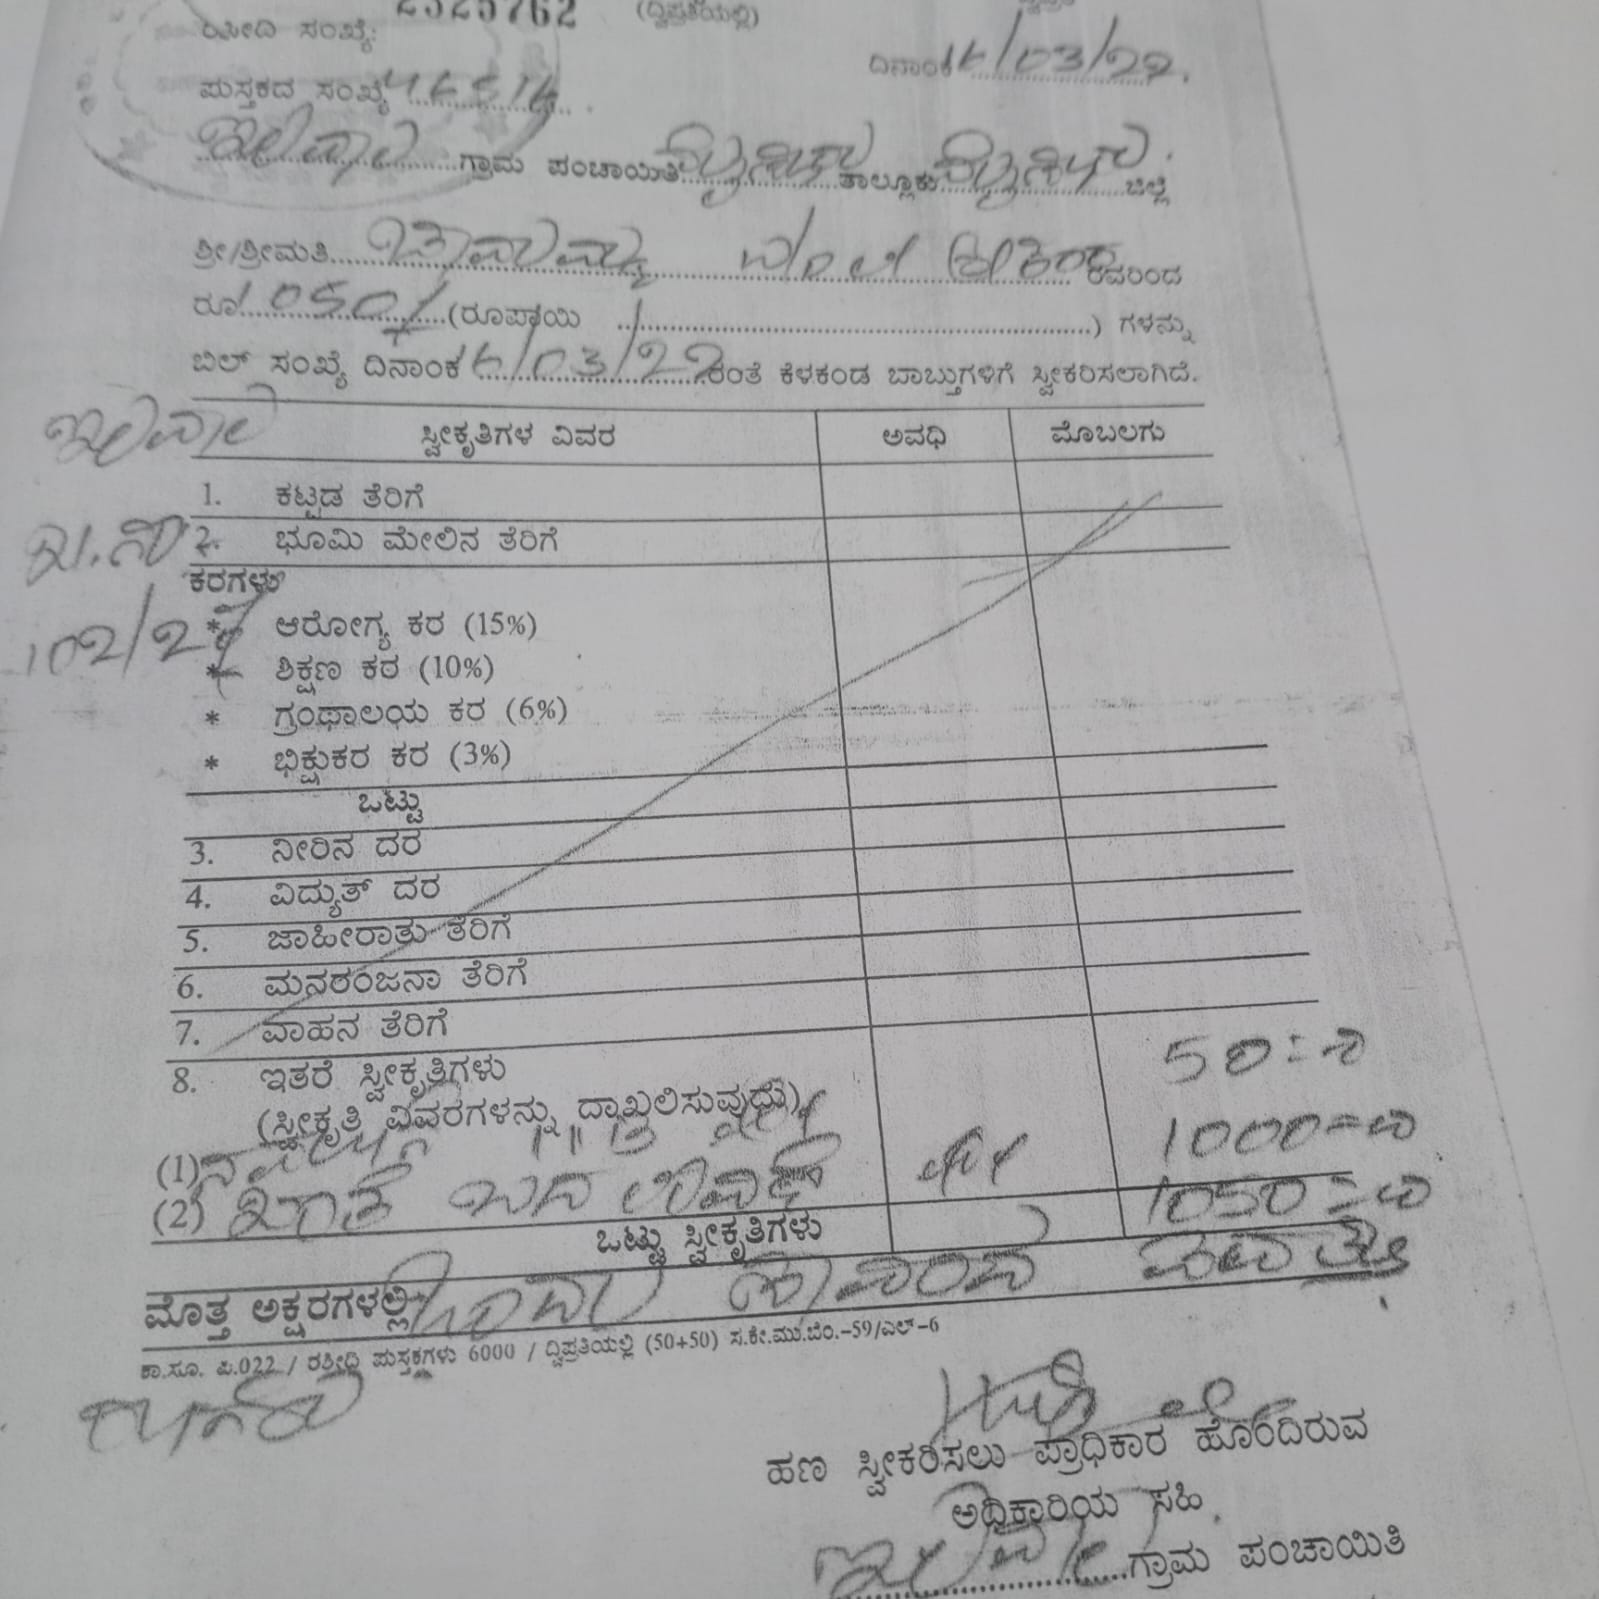 ರಸೀದಿ ಸಂಖ್ಯೆ: 2525762 (ದ್ವಿಪ್ರತಿಯಲ್ಲಿ)
ದಿನಾಂಕ 16/03/22.
ಪುಸ್ತಕದ ಸಂಖ್ಯೆ
ಇಲವಾಲ ಗ್ರಾಮ ಪಂಚಾಯಿತಿ ಮೈಸೂರು ತಾಲ್ಲೂಕು ಮೈಸೂರು ಜಿಲ್ಲೆ
ಶ್ರೀ/ಶ್ರೀಮತಿ ರವರಿಂದ
ರೂ 1050/- (ರೂಪಾಯಿ ) ಗಳನ್ನು
ಬಿಲ್ ಸಂಖ್ಯೆ ದಿನಾಂಕ 16/03/22 ರಂತೆ ಕೆಳಕಂಡ ಬಾಬ್ತುಗಳಿಗೆ ಸ್ವೀಕರಿಸಲಾಗಿದೆ.
ಇಲವಾಲ
ಸ್ವೀಕೃತಿಗಳ ವಿವರ ಅವಧಿ ಮೊಬಲಗು
1. ಕಟ್ಟಡ ತೆರಿಗೆ
2. ಭೂಮಿ ಮೇಲಿನ ತೆರಿಗೆ
ಕರಗಳು
* ಆರೋಗ್ಯ ಕರ (15%)
* ಶಿಕ್ಷಣ ಕರ (10%)
* ಗ್ರಂಥಾಲಯ ಕರ (6%)
* ಭಿಕ್ಷುಕರ ಕರ (3%)
ಒಟ್ಟು
3. ನೀರಿನ ದರ
4. ವಿದ್ಯುತ್ ದರ
5. ಜಾಹೀರಾತು ತೆರಿಗೆ
6. ಮನರಂಜನಾ ತೆರಿಗೆ
7. ವಾಹನ ತೆರಿಗೆ
8. ಇತರೆ ಸ್ವೀಕೃತಿಗಳು 50=0
(ಸ್ವೀಕೃತಿ ವಿವರಗಳನ್ನು ದಾಖಲಿಸುವುದು)
(1) 1000=00
(2) ಖಾತೆ ಬದಲಾವಣೆ 1050=00
ಒಟ್ಟು ಸ್ವೀಕೃತಿಗಳು
ಮೊತ್ತ ಅಕ್ಷರಗಳಲ್ಲಿ ಒಂದು ಸಾವಿರದ ಐವತ್ತು
ಕಾ.ಸೂ. ಪಿ.022 / ರಶೀದಿ ಪುಸ್ತಕಗಳು 6000 / ದ್ವಿಪ್ರತಿಯಲ್ಲಿ (50+50) ಸ.ಕೇ.ಮು.ಬೆಂ.-59/ಎಲ್-6
ಹಣ ಸ್ವೀಕರಿಸಲು ಪ್ರಾಧಿಕಾರ ಹೊಂದಿರುವ
ಅಧಿಕಾರಿಯ ಸಹಿ
ಇಲವಾಲ ಗ್ರಾಮ ಪಂಚಾಯಿತಿ